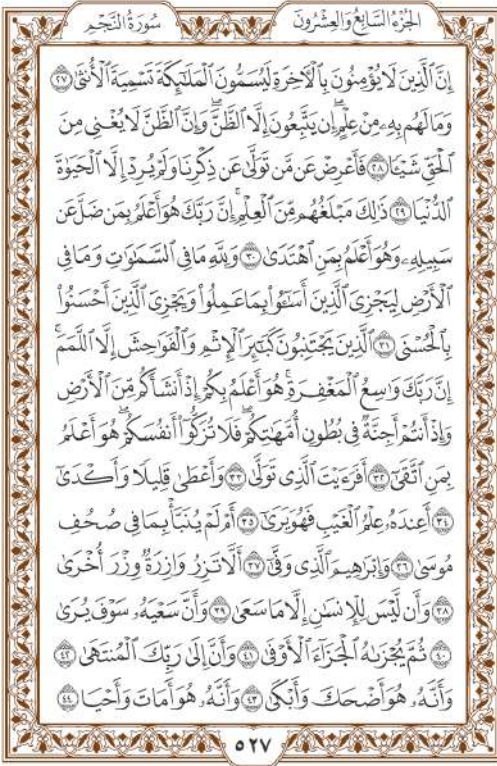 الجزء السابع والعشرون
سورة النجم
إِنَّ ٱلَّذِينَ لَا يُؤْمِنُونَ بِٱلْأَخِرَةِ لَيُسَمُّونَ ٱلْمَلَٰٓئِكَةَ تَسْمِيَةَ ٱلْأُنثَىٰ ٢٧
وَمَا لَهُم بِهِۦ مِنْ عِلْمٍ ۖ إِن يَتَّبِعُونَ إِلَّا ٱلظَّنَّ ۖ وَإِنَّ ٱلظَّنَّ لَا يُغْنِى مِنَ
ٱلْحَقِّ شَيْـًٔا ٢٨ فَأَعْرِضْ عَن مَّن تَوَلَّىٰ عَن ذِكْرِنَا وَلَمْ يُرِدْ إِلَّا ٱلْحَيَوٰةَ
ٱلدُّنْيَا ٢٩ ذَٰلِكَ مَبْلَغُهُم مِّنَ ٱلْعِلْمِ ۚ إِنَّ رَبَّكَ هُوَ أَعْلَمُ بِمَن ضَلَّ عَن
سَبِيلِهِۦ وَهُوَ أَعْلَمُ بِمَنِ ٱهْتَدَىٰ ٣٠ وَلِلَّهِ مَا فِى ٱلسَّمَٰوَٰتِ وَمَا فِى
ٱلْأَرْضِ لِيَجْزِىَ ٱلَّذِينَ أَسَٰٓـُٔوا۟ بِمَا عَمِلُوا۟ وَيَجْزِىَ ٱلَّذِينَ أَحْسَنُوا۟
بِٱلْحُسْنَى ٣١ ٱلَّذِينَ يَجْتَنِبُونَ كَبَٰٓئِرَ ٱلْإِثْمِ وَٱلْفَوَٰحِشَ إِلَّا ٱللَّمَمَ ۚ
إِنَّ رَبَّكَ وَٰسِعُ ٱلْمَغْفِرَةِ ۚ هُوَ أَعْلَمُ بِكُمْ إِذْ أَنشَأَكُم مِّنَ ٱلْأَرْضِ
وَإِذْ أَنتُمْ أَجِنَّةٌ فِى بُطُونِ أُمَّهَٰتِكُمْ ۖ فَلَا تُزَكُّوٓا۟ أَنفُسَكُمْ ۖ هُوَ أَعْلَمُ
بِمَنِ ٱتَّقَىٰٓ ٣٢ أَفَرَءَيْتَ ٱلَّذِى تَوَلَّىٰ ٣٣ وَأَعْطَىٰ قَلِيلًا وَأَكْدَىٰٓ
٣٤ أَعِندَهُۥ عِلْمُ ٱلْغَيْبِ فَهُوَ يَرَىٰٓ ٣٥ أَمْ لَمْ يُنَبَّأْ بِمَا فِى صُحُفِ
مُوسَىٰ ٣٦ وَإِبْرَٰهِيمَ ٱلَّذِى وَفَّىٰٓ ٣٧ أَلَّا تَزِرُ وَازِرَةٌ وِزْرَ أُخْرَىٰ
٣٨ وَأَن لَّيْسَ لِلْإِنسَٰنِ إِلَّا مَا سَعَىٰ ٣٩ وَأَنَّ سَعْيَهُۥ سَوْفَ يُرَىٰ
٤٠ ثُمَّ يُجْزَىٰهُ ٱلْجَزَآءَ ٱلْأَوْفَىٰ ٤١ وَأَنَّ إِلَىٰ رَبِّكَ ٱلْمُنتَهَىٰ ٤٢
وَأَنَّهُۥ هُوَ أَضْحَكَ وَأَبْكَىٰ ٤٣ وَأَنَّهُۥ هُوَ أَمَاتَ وَأَحْيَا ٤٤
٥٢٧